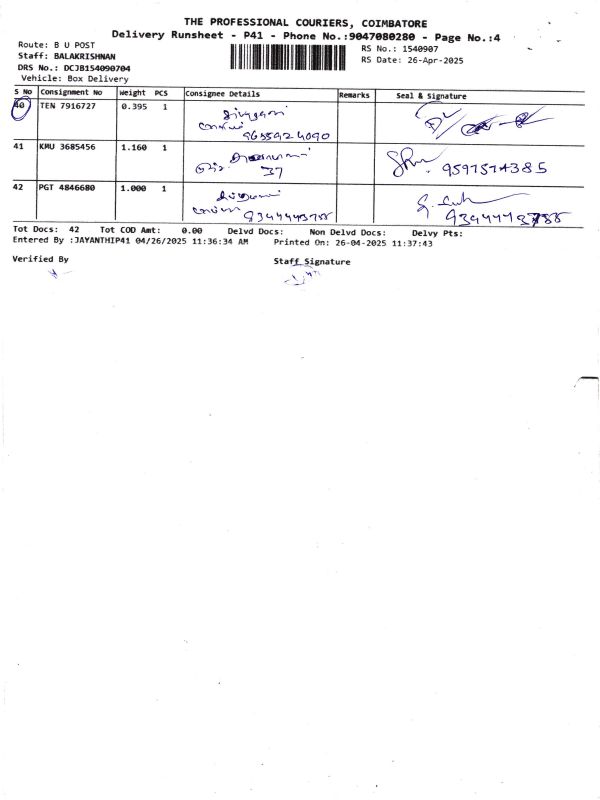 THE PROFESSIONAL COURIERS, COIMBATORE
Delivery Runsheet - P41 - Phone No.:9047080280 - Page No.:4
Route: B U POST
RS No.: 1540907
Staff: BALAKRISHNAN
RS Date: 26-Apr-2025
DRS No.: DCJB154090704
Vehicle: Box Delivery
S No Consignment No Weight PCS Consignee Details Remarks Seal & Signature
40 TEN 7916727 0.395 1
9655924090
41 KMU 3685456 1.160 1
37 9597574385
42 PGT 4846680 1.000 1
9344443788 9344443788
Tot Docs: 42 Tot COD Amt: 0.00 Delvd Docs: Non Delvd Docs: Delvy Pts:
Entered By :JAYANTHIP41 04/26/2025 11:36:34 AM Printed On: 26-04-2025 11:37:43
Verified By Staff Signature